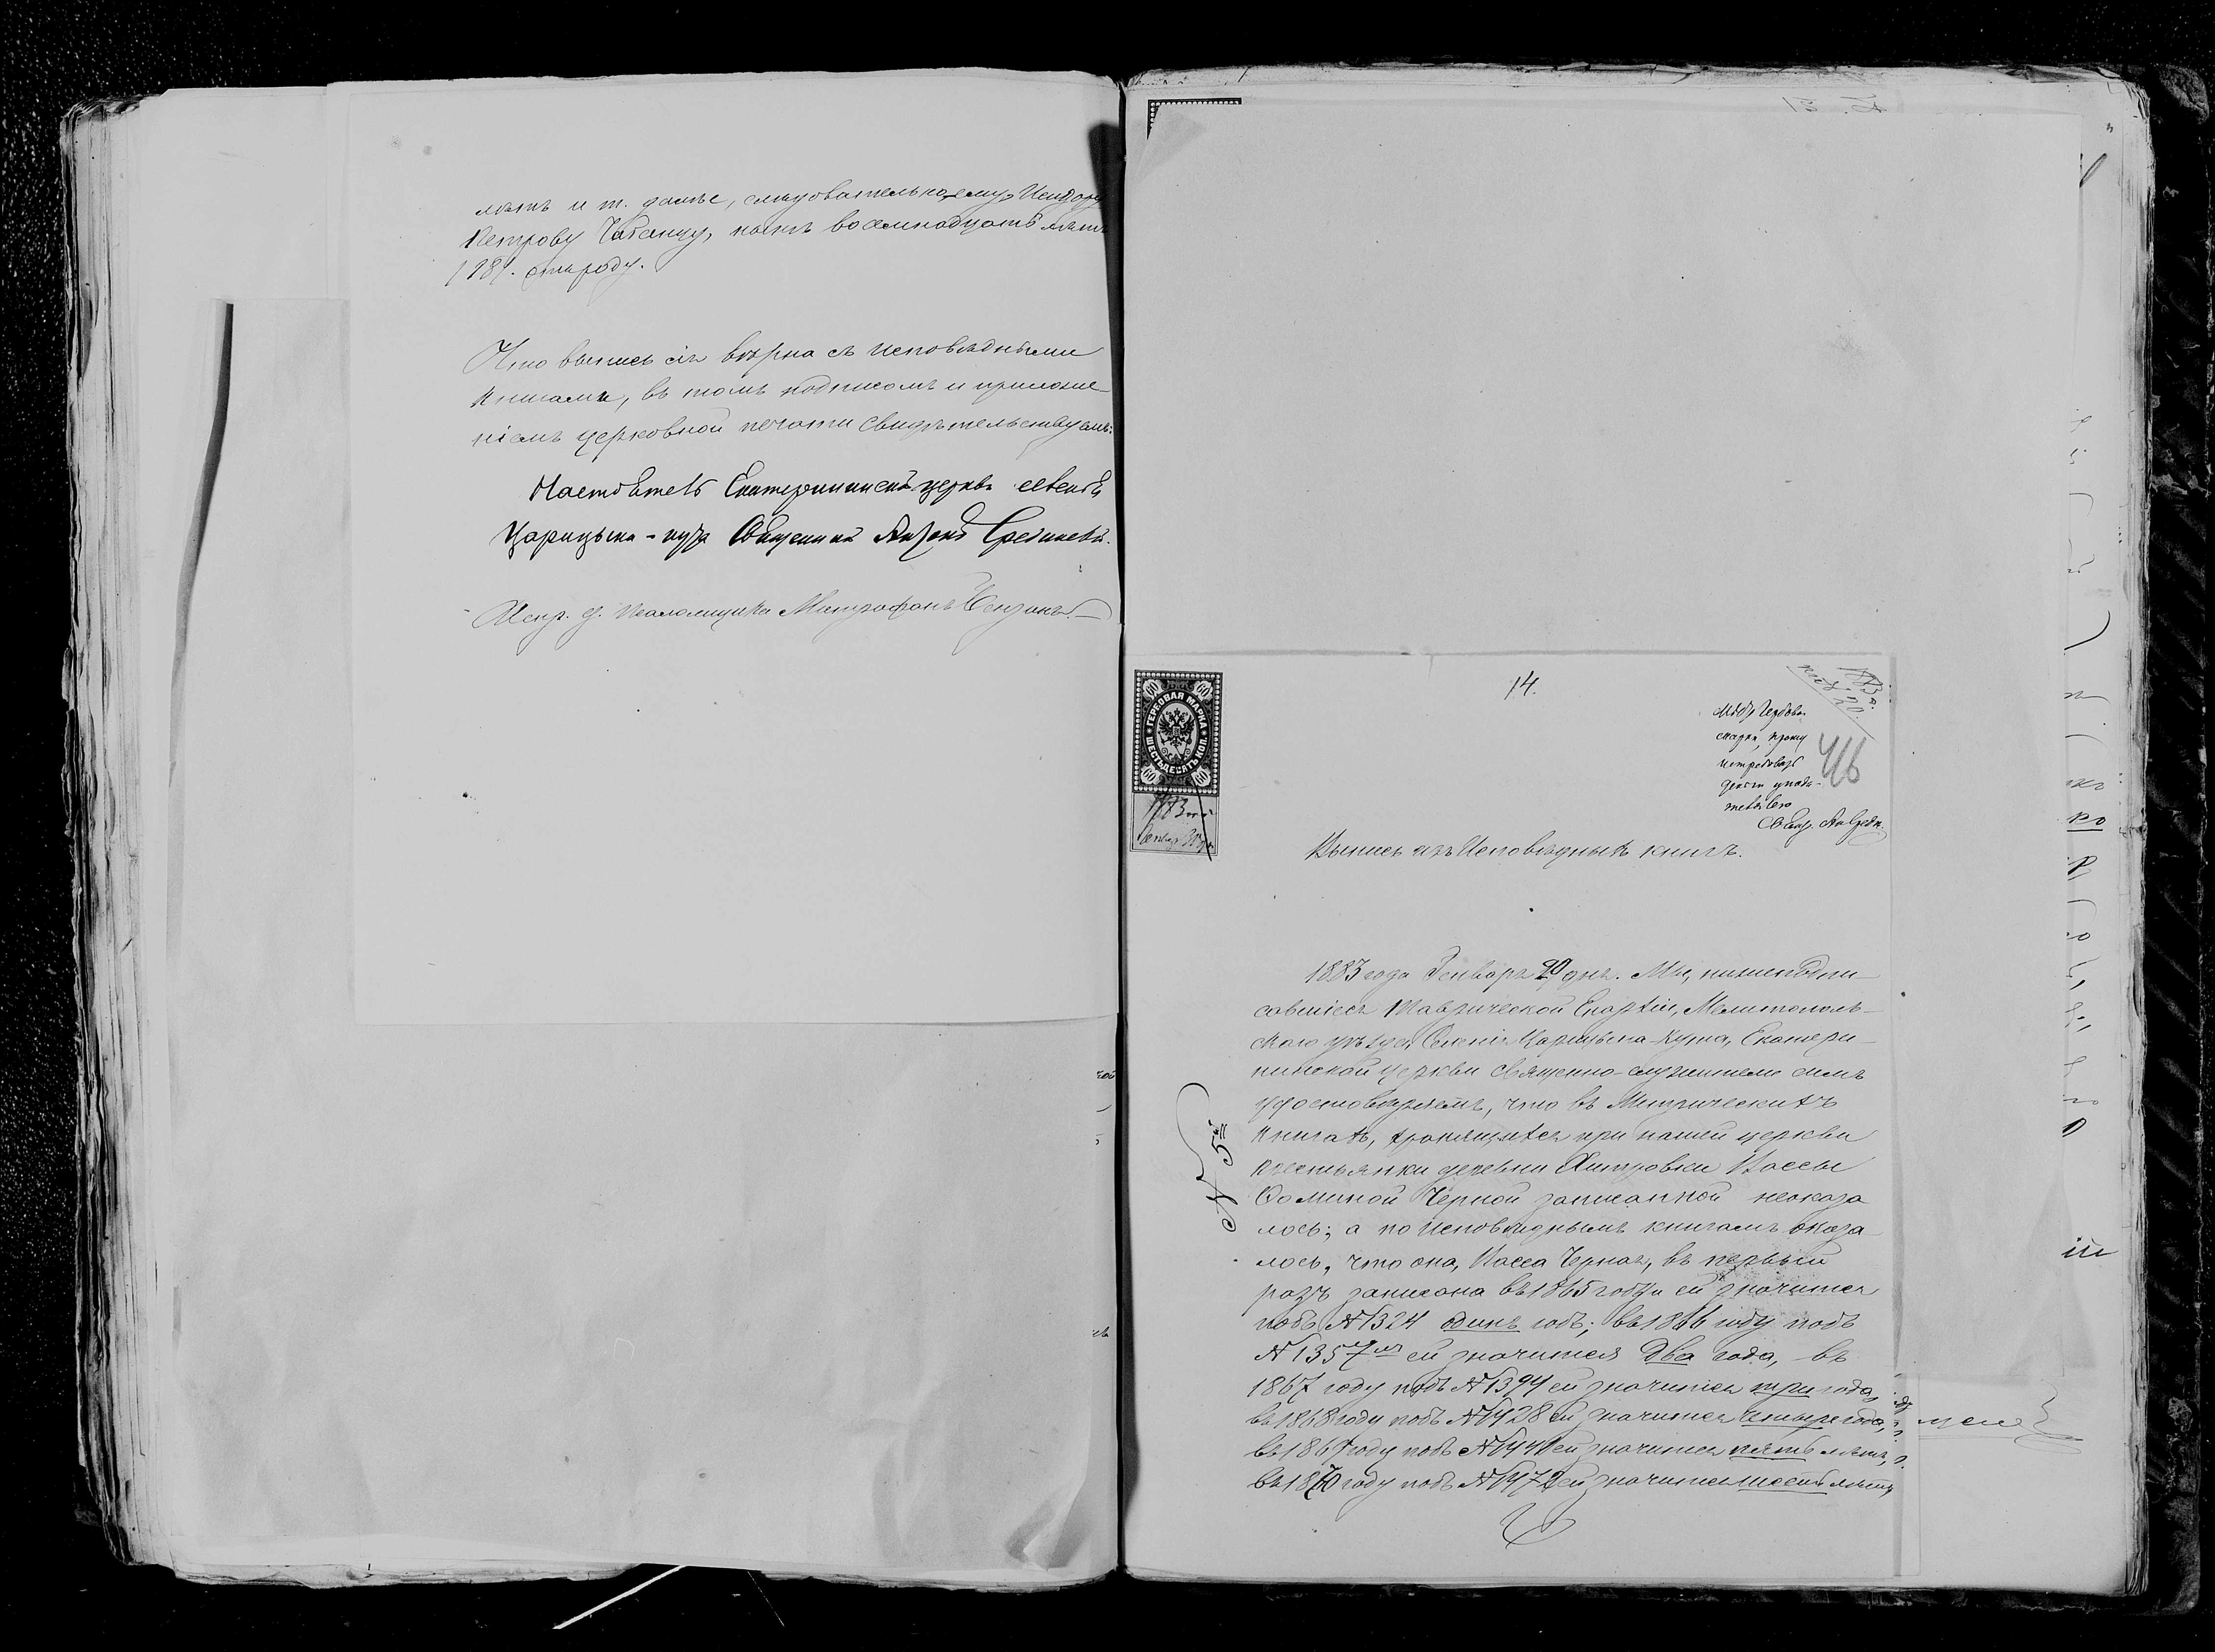 лѣтъ и т. далѣе, слѣдовательно, ему, Исидору
Петрову Чабанцу, нынѣ восемнадцать лѣтъ
/18/. отъ роду.
Что выпись сія вѣрна съ исповѣдными
книгами, въ томъ подписомъ и приложе-
ніемъ церковной печати свидѣтельствуемъ:
Настоятель Екатерининской церкви селенія
Царицына-кута Священникъ
Испр. д. псаломщика Митрофанъ
14.
1883 г.
46
марки, прошу
истребовать
Свящ.
ГЕРБОВАЯ МАРКА
ШЕСТЬДЕСЯТЪ КОП.
60 60
60 60
1883 года
Выпись изъ Исповѣдныхъ книгъ.
1883 года Генваря 20 дня. Мы, нижеподпи-
савшіеся Таврической Епархіи, Мелитополь-
скаго уѣзда, Селенія Царицына-Кута, Екатери-
нинской церкви священно-служители симъ
удостовѣряемъ, что въ Метрическихъ
книгахъ, хранящихся при нашей церкви
крестьянки деревни Янтровки Вассы
Фоминой Черной записанной неоказа
лось; а по исповѣднымъ книгамъ оказа
лось, что она, Васса Черная, въ первый
разъ записана въ 1865 году и ей значится
подъ № 1324 одинъ годъ; въ 1866 году подъ
№ 1357мъ ей значится два года, въ
1867 году подъ № 1394 ей значится три года,
въ 1868 году подъ № 1428 ей значится четыре года,
въ 1869 году подъ № ей значится пять лѣтъ,
въ 1870 году подъ № ей значится шесть лѣтъ,
№ 5й